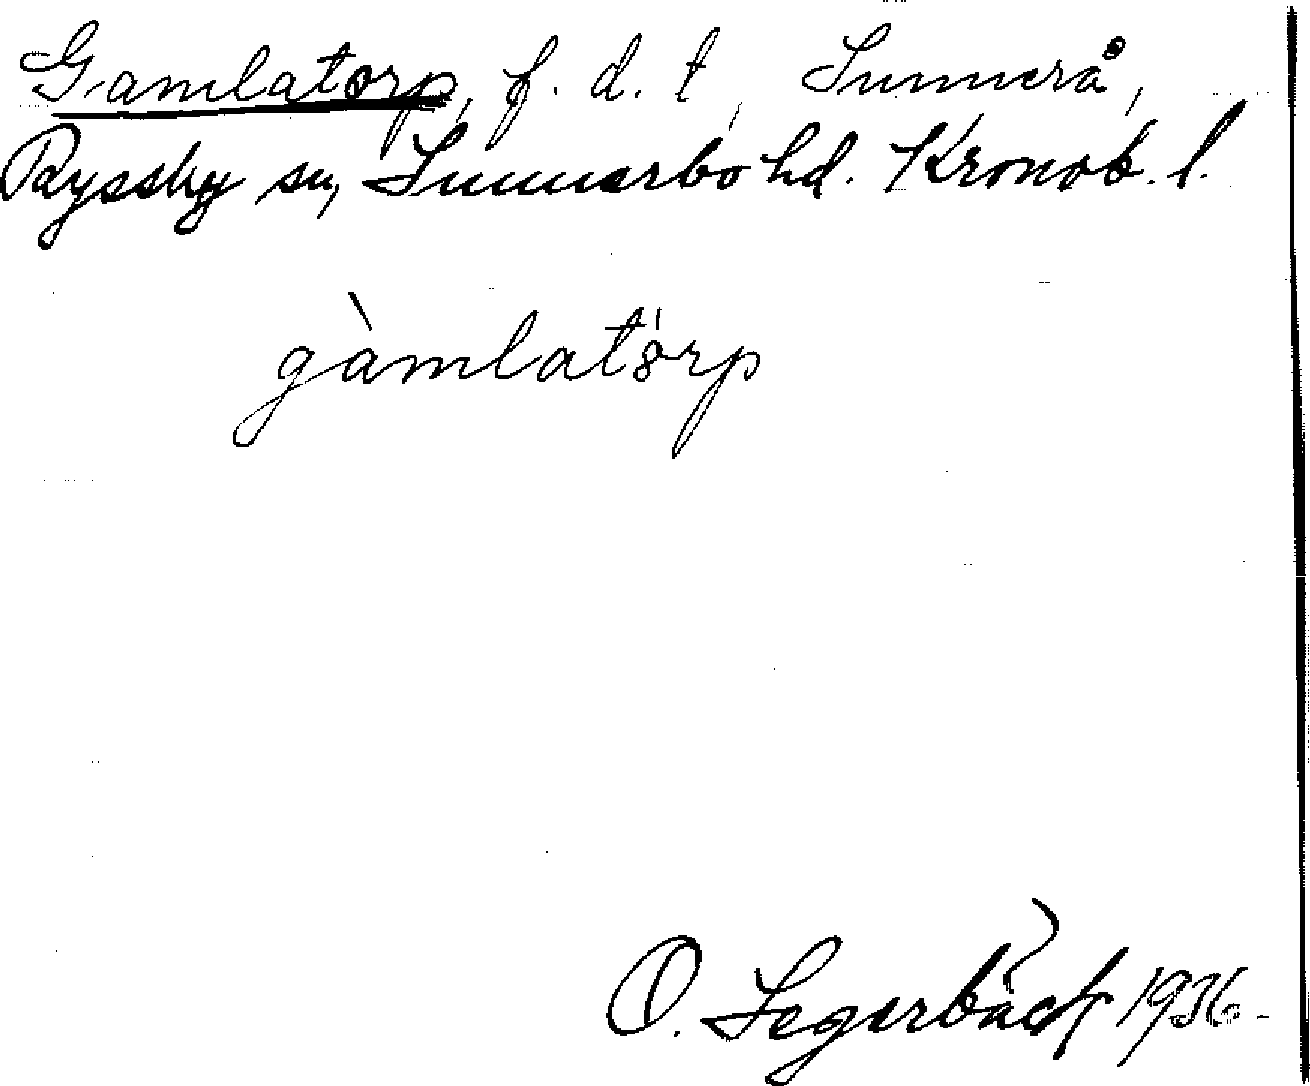 Gamlatorp, f. d. t, Sunnerå,
Ryssby sn, Sunnerbo hd. Kronob. l.
gàmlatórp
O. Segerbäck 1936